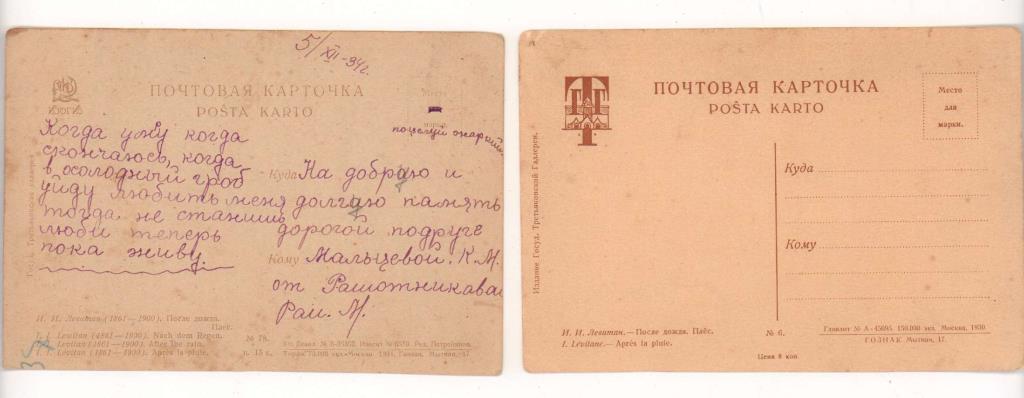 5/XII-34г.
ПОЧТОВАЯ КАРТОЧКА
POŜTA KARTO
Место
марки.
поцелуй
Когда умру когда
скончаюсь, когда
в холодный гроб
уйду любить меня
тогда не станишь
люби теперь
пока живу.
Куда На добраю и
долгаю память
дорогой подруге
Кому Мальцевой. К.М.
от
Раи. М.
Госуд. Третьяковской Галлереи
И. И. Левитан (1861—1900). После дождя.
Плёс.
I. I. Levitan (1861—1900). Nach dem Regen.
I. Levitan (1861—1900). After the rain.
I. I. Levitan (1861—1900). Après la pluie.
№ 78.
ц. 15 к.
37
ПОЧТОВАЯ КАРТОЧКА
POŜTA KARTO
Место
для
марки.
Издание Госуд. Третьяковской Галлереи.
Куда
Кому
И. И. Левитан.—После дождя. Плёс.
I. Levitane.—Après la pluie.
№ 6.
Главлит № А-45695. 150.000 экз. Москва, 1930
ГОЗНАК Мытная, 17.
Цена 8 коп